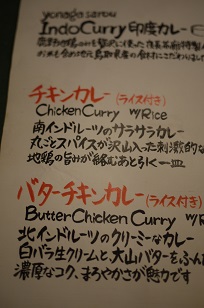 yonaga sarou
IndoCurry 印度カレー
チキンカレー(ライス付き)
ChickenCurry w/Rice
南インドルーツのサラサラカレー
丸ごとスパイスが沢山入った刺激的な
地鶏の旨みが絡むあと引く一皿
バターチキンカレー(ライス付き)
Butter Chicken Curry w/R
北インドルーツのクリーミーなカレー
白バラ生クリームと、大山バターをふんだ
濃厚なコク、まろやかさが魅力です